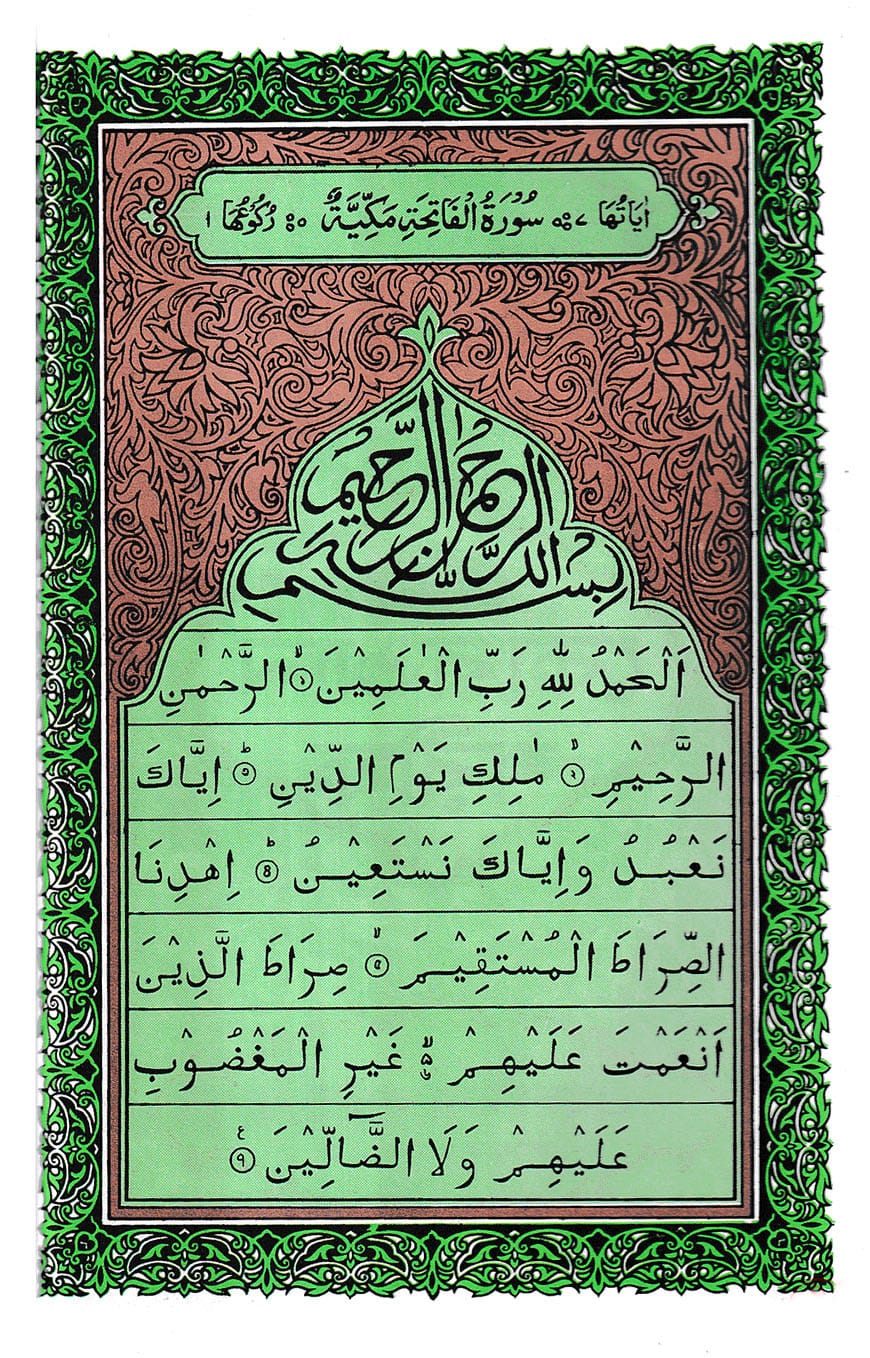 اٰيَاتُهَا ٧ ۝ سُوْرَةُ الْفَاتِحَةِ مَكِّيَّةٌ ۝ رُكُوْعُهَا ١
بِسْمِ اللهِ الرَّحْمٰنِ الرَّحِيْمِ
اَلْحَمْدُ لِلّٰهِ رَبِّ الْعٰلَمِيْنَ ۙ‏﴿١﴾ الرَّحْمٰنِ
الرَّحِيْمِ ۙ‏﴿٢﴾ مٰلِكِ يَوْمِ الدِّيْنِ ؕ‏﴿٣﴾ اِيَّاكَ
نَعْبُدُ وَاِيَّاكَ نَسْتَعِيْنُ ؕ‏﴿٤﴾ اِهْدِنَا
الصِّرَاطَ الْمُسْتَقِيْمَ ۙ‏﴿٥﴾ صِرَاطَ الَّذِيْنَ
اَنْعَمْتَ عَلَيْهِمْ ۙ۬ غَيْرِ الْمَغْضُوْبِ
عَلَيْهِمْ وَلَا الضَّآلِّيْنَ